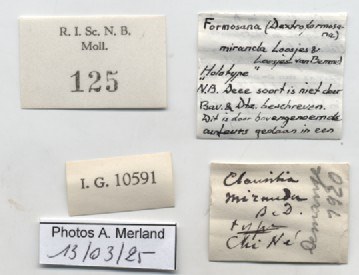 R. I. Sc. N. B.
Moll.
125
Formosana (Dextroformosa-
na)
miranda Loosjes &
Loosjes van Bemmel
"Holotype"
N.B. Deze soort is niet door
Bav. & Dtz. beschreven.
Dit is door bovengenoemde
auteurs gedaan in een
I. G. 10591
Photos A. Merland
13/03/25
Clausilia
miranda
B & D.
type
Chi Né